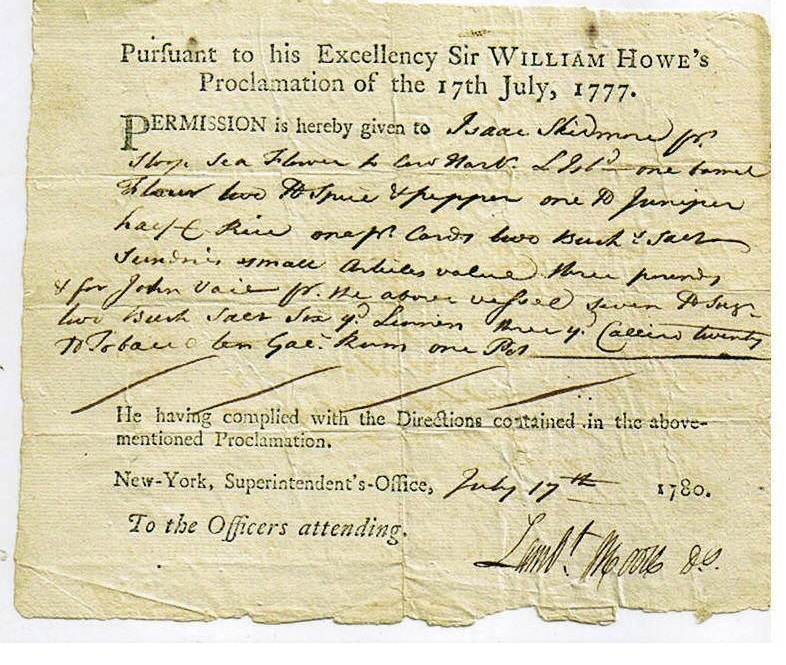 Purſuant to his Excellency Sir WILLIAM HOWE's
Proclamation of the 17th July, 1777.
PERMISSION is hereby given to Isaac Skidmore pr.
Sloop Sea Flower to Cow Nark L Isld one barrel
Flour two lb Spice & pepper one lb Juniper
half C Rice one pr. Cards two Bush.s Salt
Sundries small Articles value three pounds
& for John Vail pr. the above veſsel seven lb Sugr
two Bush Salt Six yd. Linnen three yd. Callico twenty
lb Tobacco ten Gal. Rum one Pot
He having complied with the Directions contained in the above-
mentioned Proclamation.
New-York, Superintendent's-Office, July 17th 1780.
To the Officers attending.
Lambt. Moore